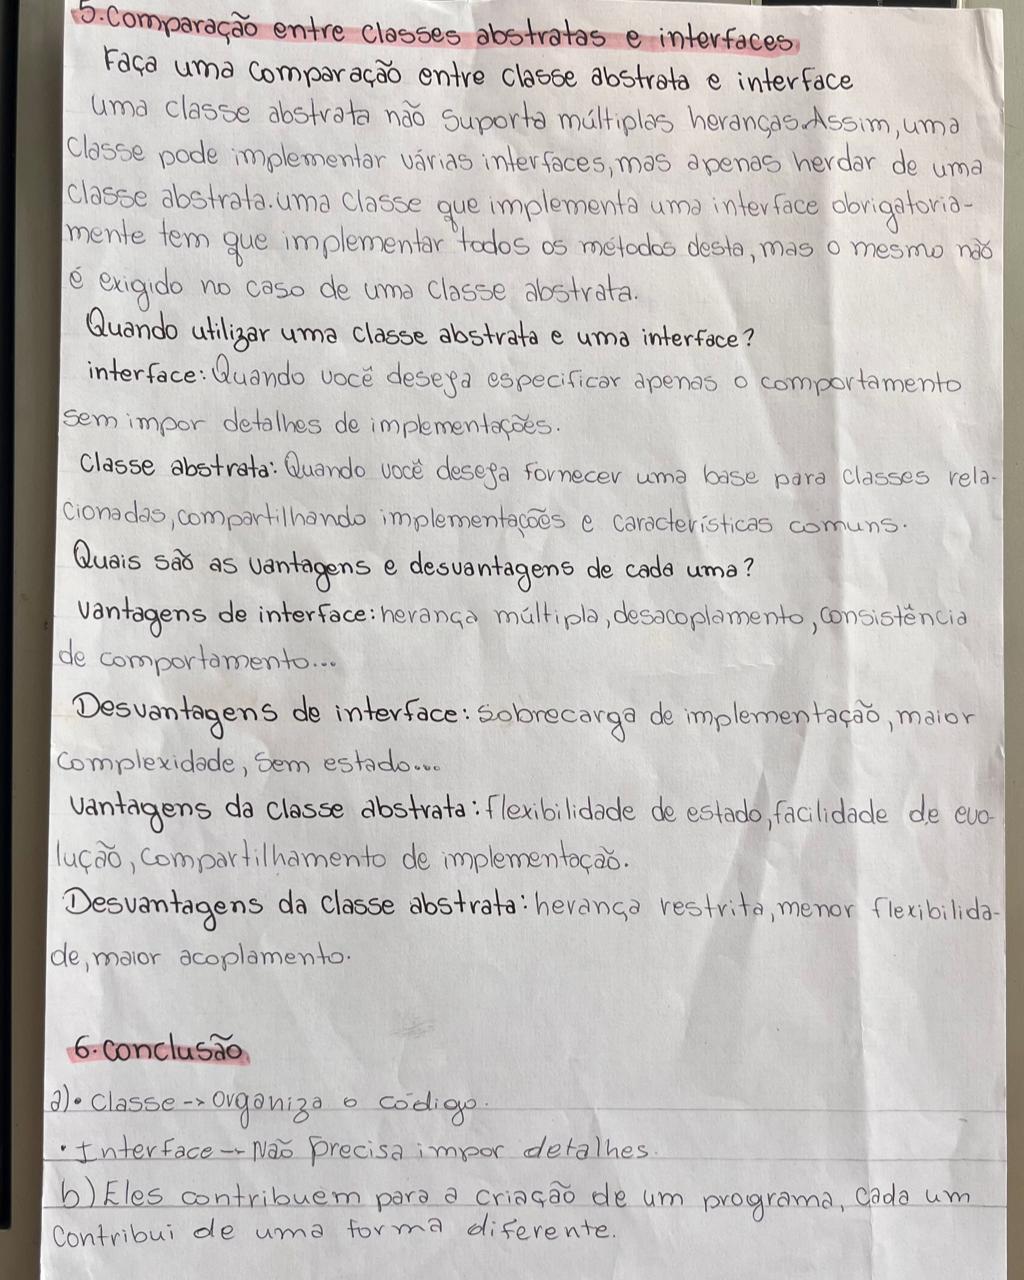 5.Comparação entre classes abstratas e interfaces
Faça uma comparação entre classe abstrata e interface
uma classe abstrata não suporta múltiplas heranças.Assim, uma
classe pode implementar várias interfaces, mas apenas herdar de uma
classe abstrata. uma classe que implementa uma interface obrigatoria-
mente tem que implementar todos os métodos desta, mas o mesmo não
é exigido no caso de uma classe abstrata.
Quando utilizar uma classe abstrata e uma interface?
interface: Quando você deseja especificar apenas o comportamento
sem impor detalhes de implementações.
Classe abstrata: Quando você deseja fornecer uma base para classes rela-
cionadas, compartilhando implementações e características comuns.
Quais são as vantagens e desvantagens de cada uma?
vantagens de interface: herança múltipla, desacoplamento, consistência
de comportamento...
Desvantagens de interface: sobrecarga de implementação, maior
complexidade, sem estado....
vantagens da classe abstrata: flexibilidade de estado, facilidade de evo-
lução, compartilhamento de implementação.
Desvantagens da classe abstrata: herança restrita, menor flexibilida-
de, maior acoplamento.
6. conclusão
a)• Classe -> organiza o código.
• Interface -> Não precisa impor detalhes.
b) Eles contribuem para a criação de um programa, cada um
contribui de uma forma diferente.